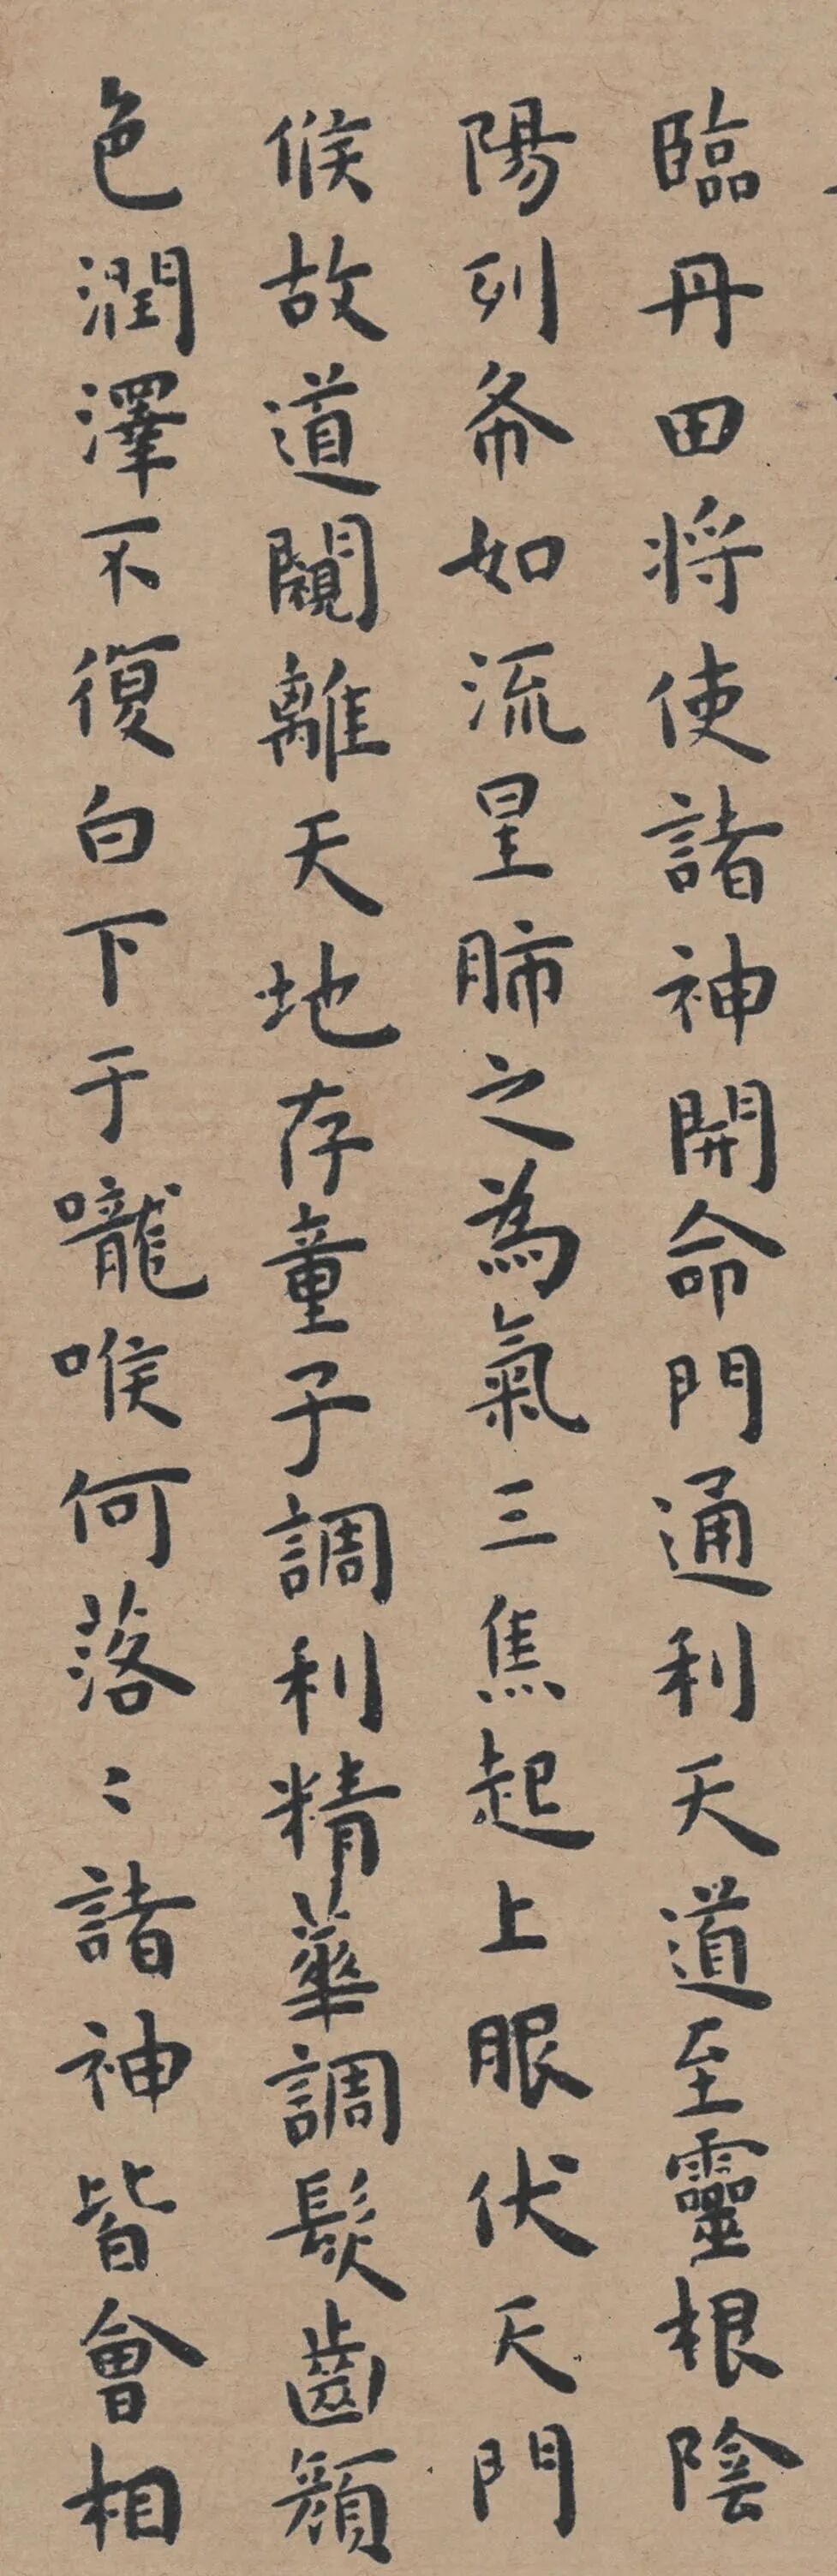 臨丹田将使諸神開命門通利天道至靈根陰
陽列布如流星肺之為氣三焦起上服伏天門
候故道闚離天地存童子調利精華調髮齒顏
色潤澤不復白下于嚨喉何落〻諸神皆會相